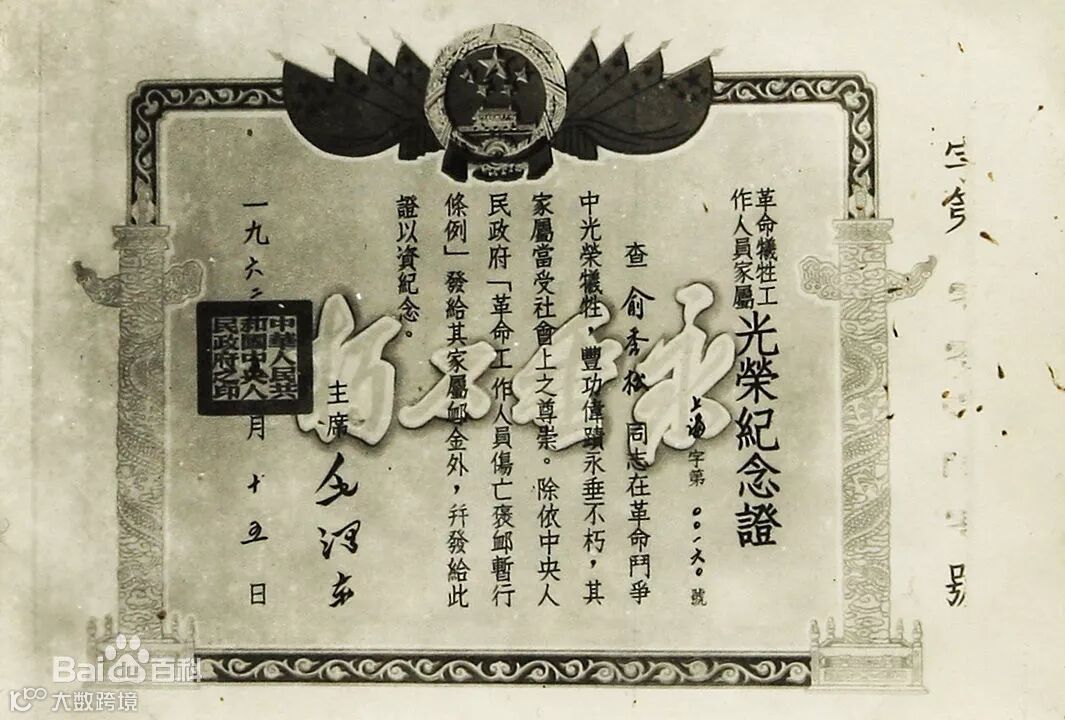 革命犧牲工
作人員家屬
光榮紀念證
上海字第〇〇一六〇號
查俞秀松同志在革命鬥爭
中光榮犧牲，豐功偉蹟永垂不朽，其
家屬當受社會上之尊崇。除依中央人
民政府「革命工作人員傷亡褒卹暫行
條例」發給其家屬卹金外，幷發給此
證以資紀念。
主席毛澤東
一九六二
月十五日
中華人民共
和國中央人
民政府之印
永垂不朽
號
Bai百科
大数跨境